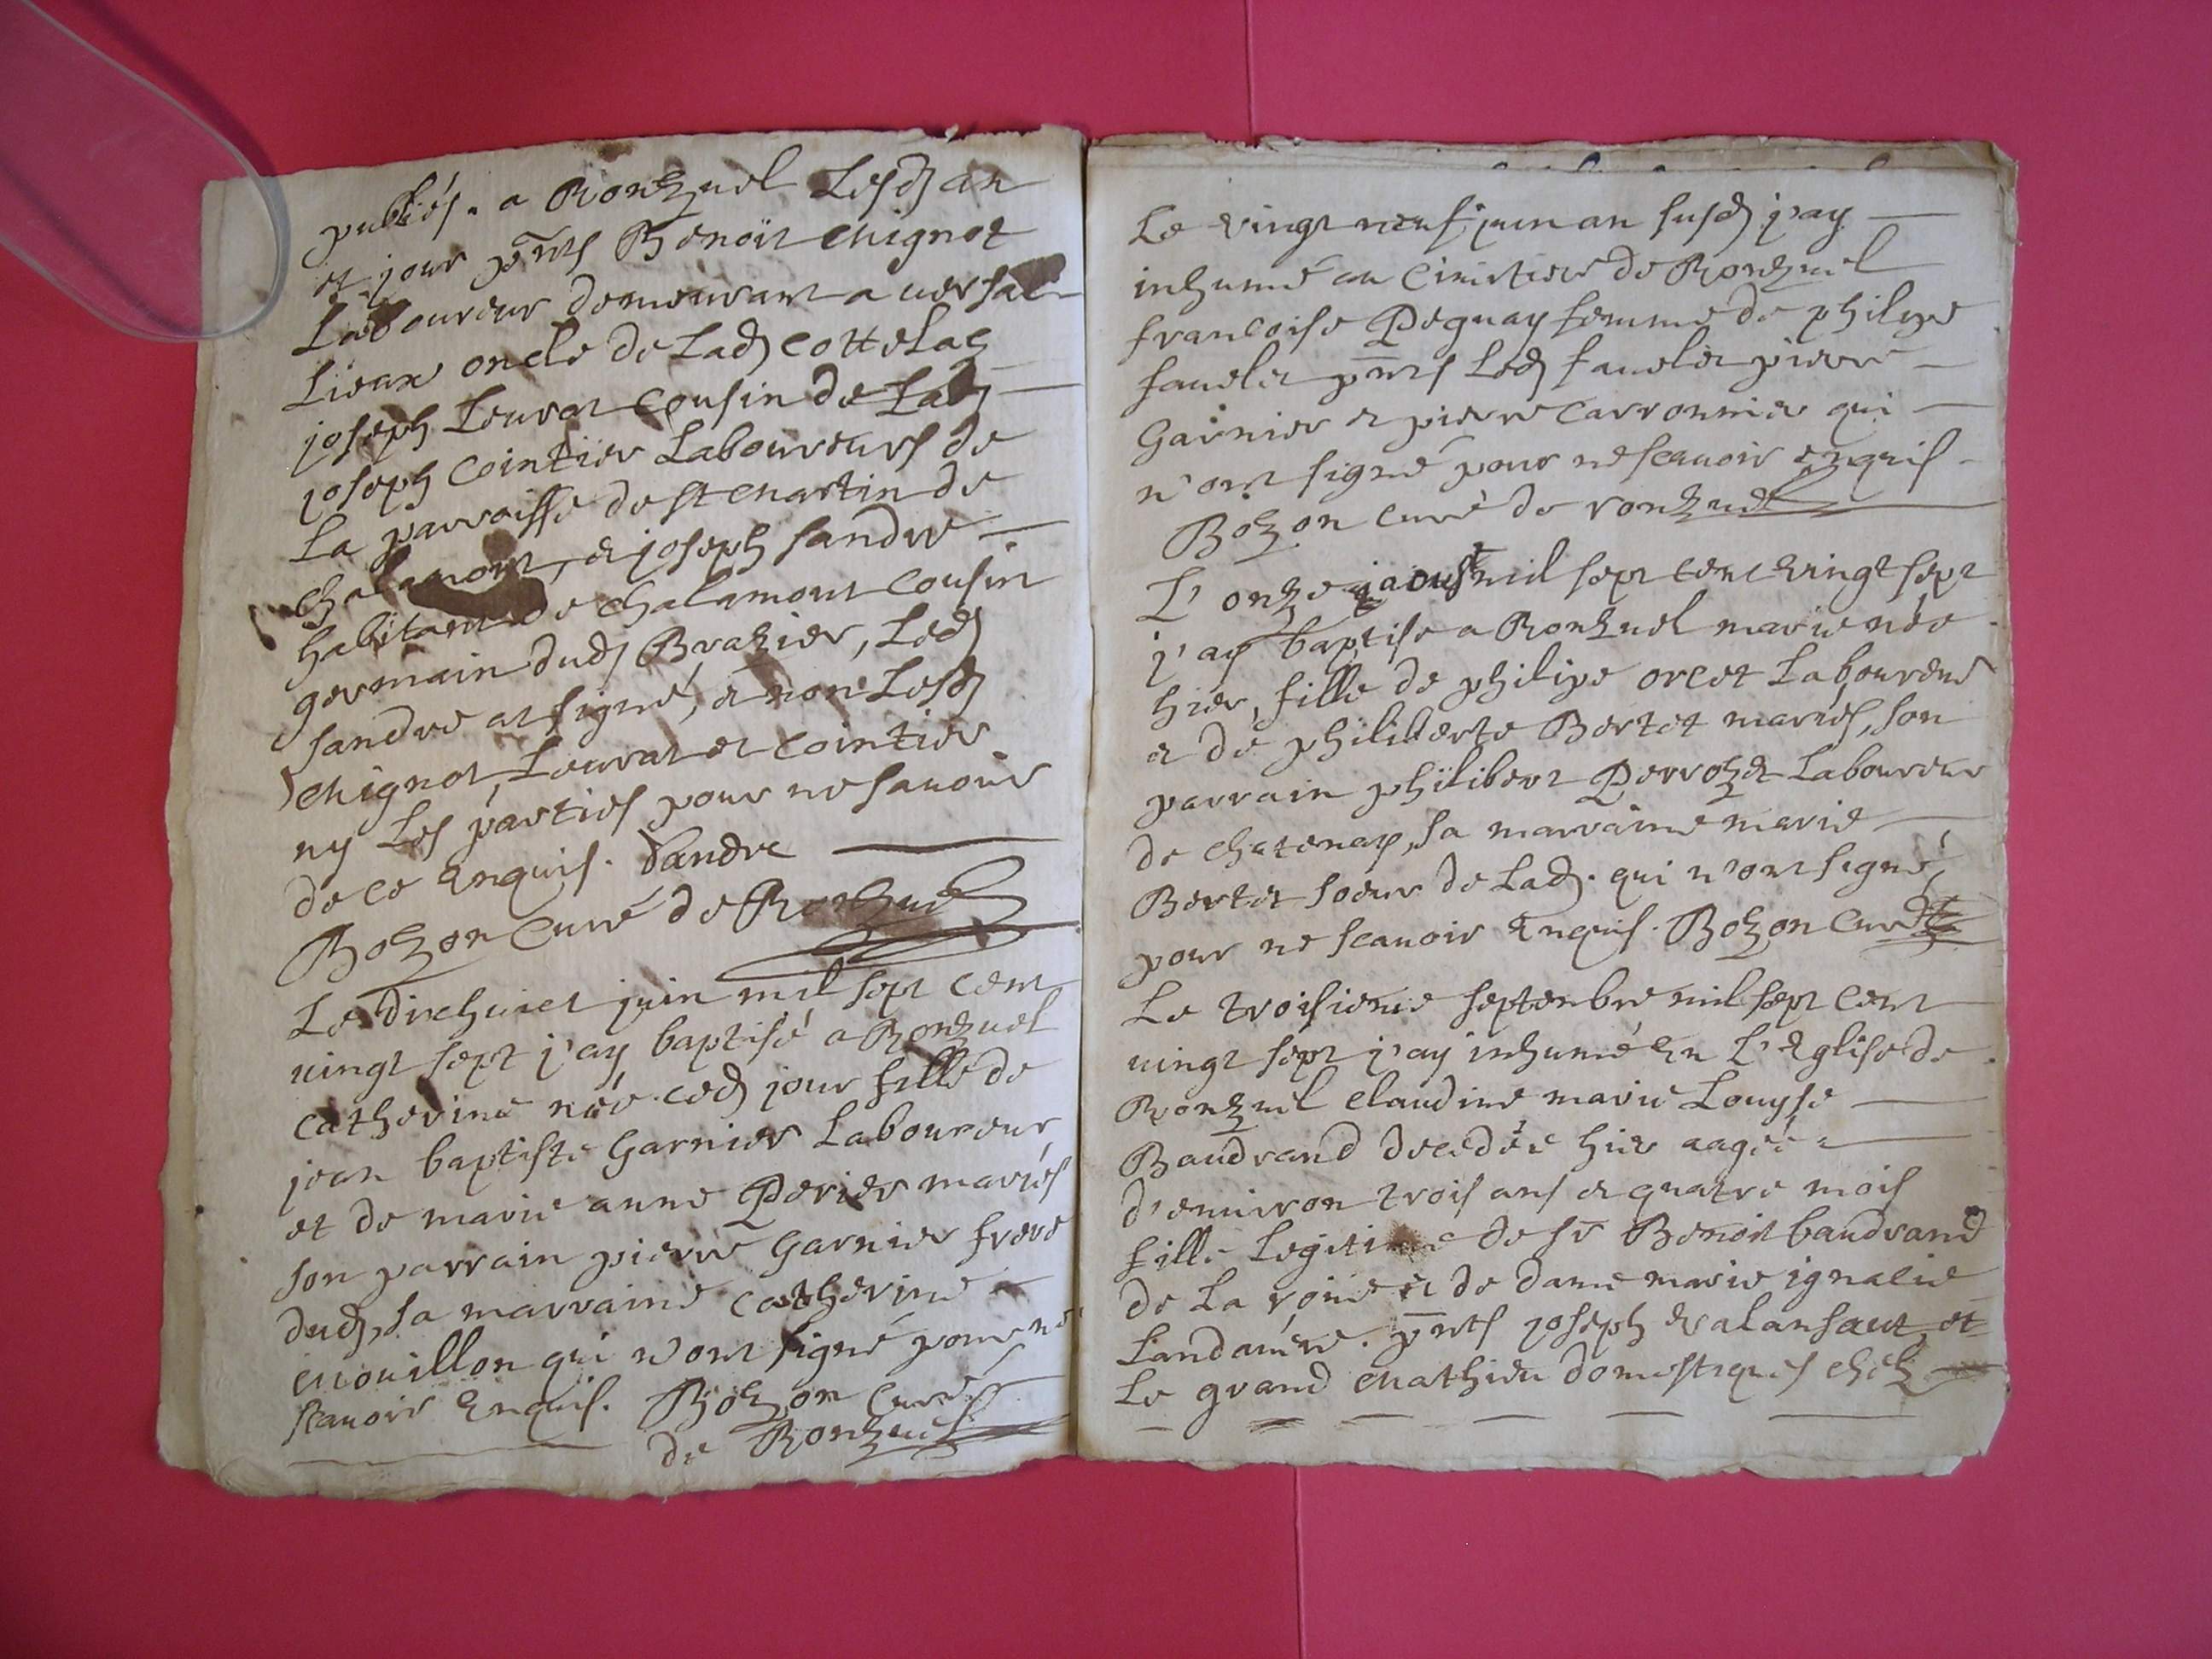 publiés. a Ronzuel Lesd an
et jour pnts Benoit Mignot
Laboureur demeurant a versali
Lieux oncle de Lad Cottelas
joseph Leurat Cousin de Lad
joseph Cointier Laboureurs de
La parroisse de st Martin de
chalamont, et joseph sandre
habitant de chalamont Cousin
germain dud Brazier, Led
sandre at signé, et non Lesd
Mignot, Leurat et Cointier
ny Les parties pour ne savoir
de ce Enquis. Sandre
Bozon Curé de Ronzuel
Le dixhuiet juin mil sept cent
vingt sept j'ay baptisé a Ronzuel
catherine née ced jour fille de
jean baptiste Garnier Laboureur
et de marie anne Perier mariés
son parrain pierre Garnier frere
dud, sa marraine catherine
Mouillon qui n'ont signé pour ne
scavoir Enquis. Bozon Curé
de Ronzuel
Le vingt neuf juin an susd j'ay
inhumé au Cimetiere de Ronzuel
francoise Peguay femme de philipe
favelet pnts Led favelet pierre
Garnier et pierre Carronnier qui
n'ont signé pour ne scavoir enquis
Bozon curé de ronzuel
L'onze aoust mil sept cent vingt sept
j'ay baptise a Ronzuel marie née
hier, fille de philipe orcet Laboureur
et de philiberte Bertet mariés, son
parrain philibert Perrozet Laboureur
de chatenay, sa marraine marie
Bertet soeur de Lad. qui n'ont signé,
pour ne scavoir Enquis. Bozon Curé
Le troisieme septenbre mil sept cent
vingt sept j'ay inhumé En L'Eglise de
Ronzuel Claudine marie Louyse
Baudrand decedée hier aagée
d'environ trois ans et quatre mois
fille Legitime de sr Benoit baudrand
de La et de dame marie ignacie
Landaméne. pnts joseph et
Le grand Mathieu domestiques chez